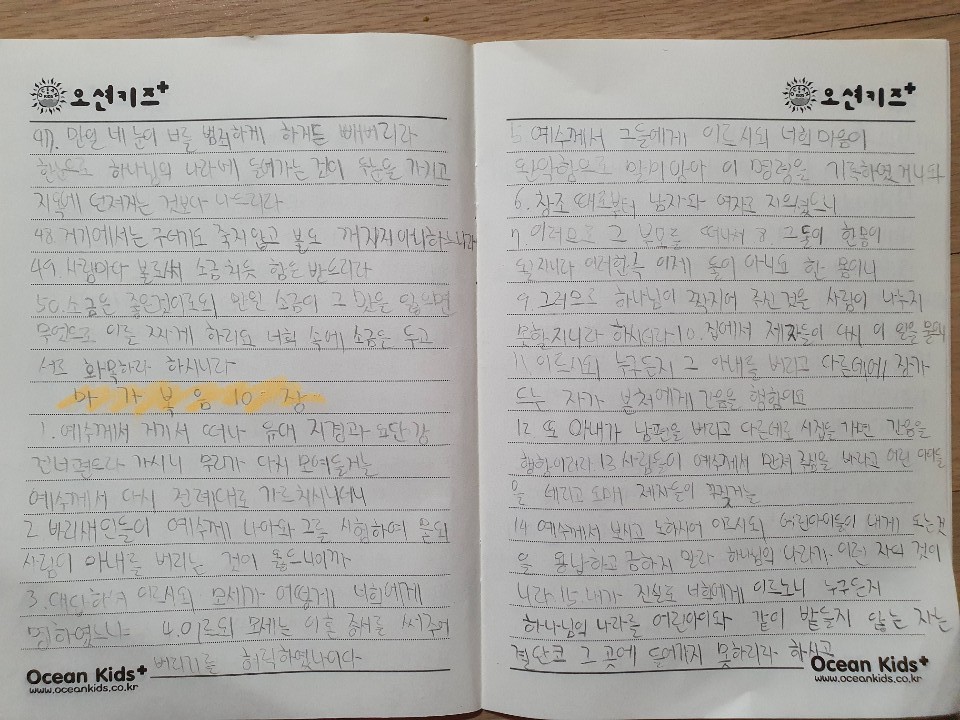 오션키즈+
47. 만일 네 눈이 너를 범죄하게 하거든 빼버리라
한눈으로 하나님의 나라에 들어가는 것이 두눈을 가지고
지옥에 던져지는 것보다 나으리라
48. 거기에서는 구더기도 죽지 않고 불도 꺼지지아니하느니라
49 사람마다 불로써 소금 치듯 함을 받으리라
50. 소금은 좋은것이로되 만일 소금이 그 맛을 잃으면
무엇으로 이를 짜게 하리요 너희 속에 소금을 두고
서로 화목하라 하시니라
마가복음 10장
1. 예수께서 거기서 떠나 유대 지경과 요단강
건너편으로 가시니 무리가 다시 모여들거늘
예수께서 다시 전례대로 가르치시더니
2 바리새인들이 예수께 나아와 그를 시험하여 묻되
사람이 아내를 버리는 것이 옳으니이까
3. 대답하여 이르시되 모세가 어떻게 너희에게
명하였느냐 4. 이르되 모세는 이혼 증서를 써주어
버리기를 허락하였나이다
Ocean Kids+
www.oceankids.co.kr
오션키즈+
5 예수께서 그들에게 이르시되 너희 마음이
완악함으로 말미암아 이 명령을 기록하였거니와
6. 창조 때로부터 남자와 여자로 지으셨으니
7. 이러므로 그 부모를 떠나서 8. 그둘이 한몸이
될지니라 이러한즉 이제 둘이 아니요 한 몸이니
9 그러므로 하나님이 짝지어 주신것을 사람이 나누지
못할지니라 하시더라 10. 집에서 제자들이 다시 이 일을 물으니
11 이르시되 누구든지 그 아내를 버리고 다른데에 장가
드는 자가 본처에게 간음을 행함이요
12 또 아내가 남편을 버리고 다른데로 시집을 가면 간음을
행함이니라 13 사람들이 예수께서 만져 주심을 바라고 어린 아이들
을 데리고 오매 제자들이 꾸짖거늘
14 예수께서 보시고 노하시어 이르시되 어린아이들이 내게 오는것
을 용납하고 금하지 말라 하나님의 나라가 이런 자의 것이
니라 15. 내가 진실로 너희에게 이르노니 누구든지
하나님의 나라를 어린아이와 같이 받들지 않는 자는
결단코 그 곳에 들어가지 못하리라 하시고
Ocean Kids+
www.oceankids.co.kr